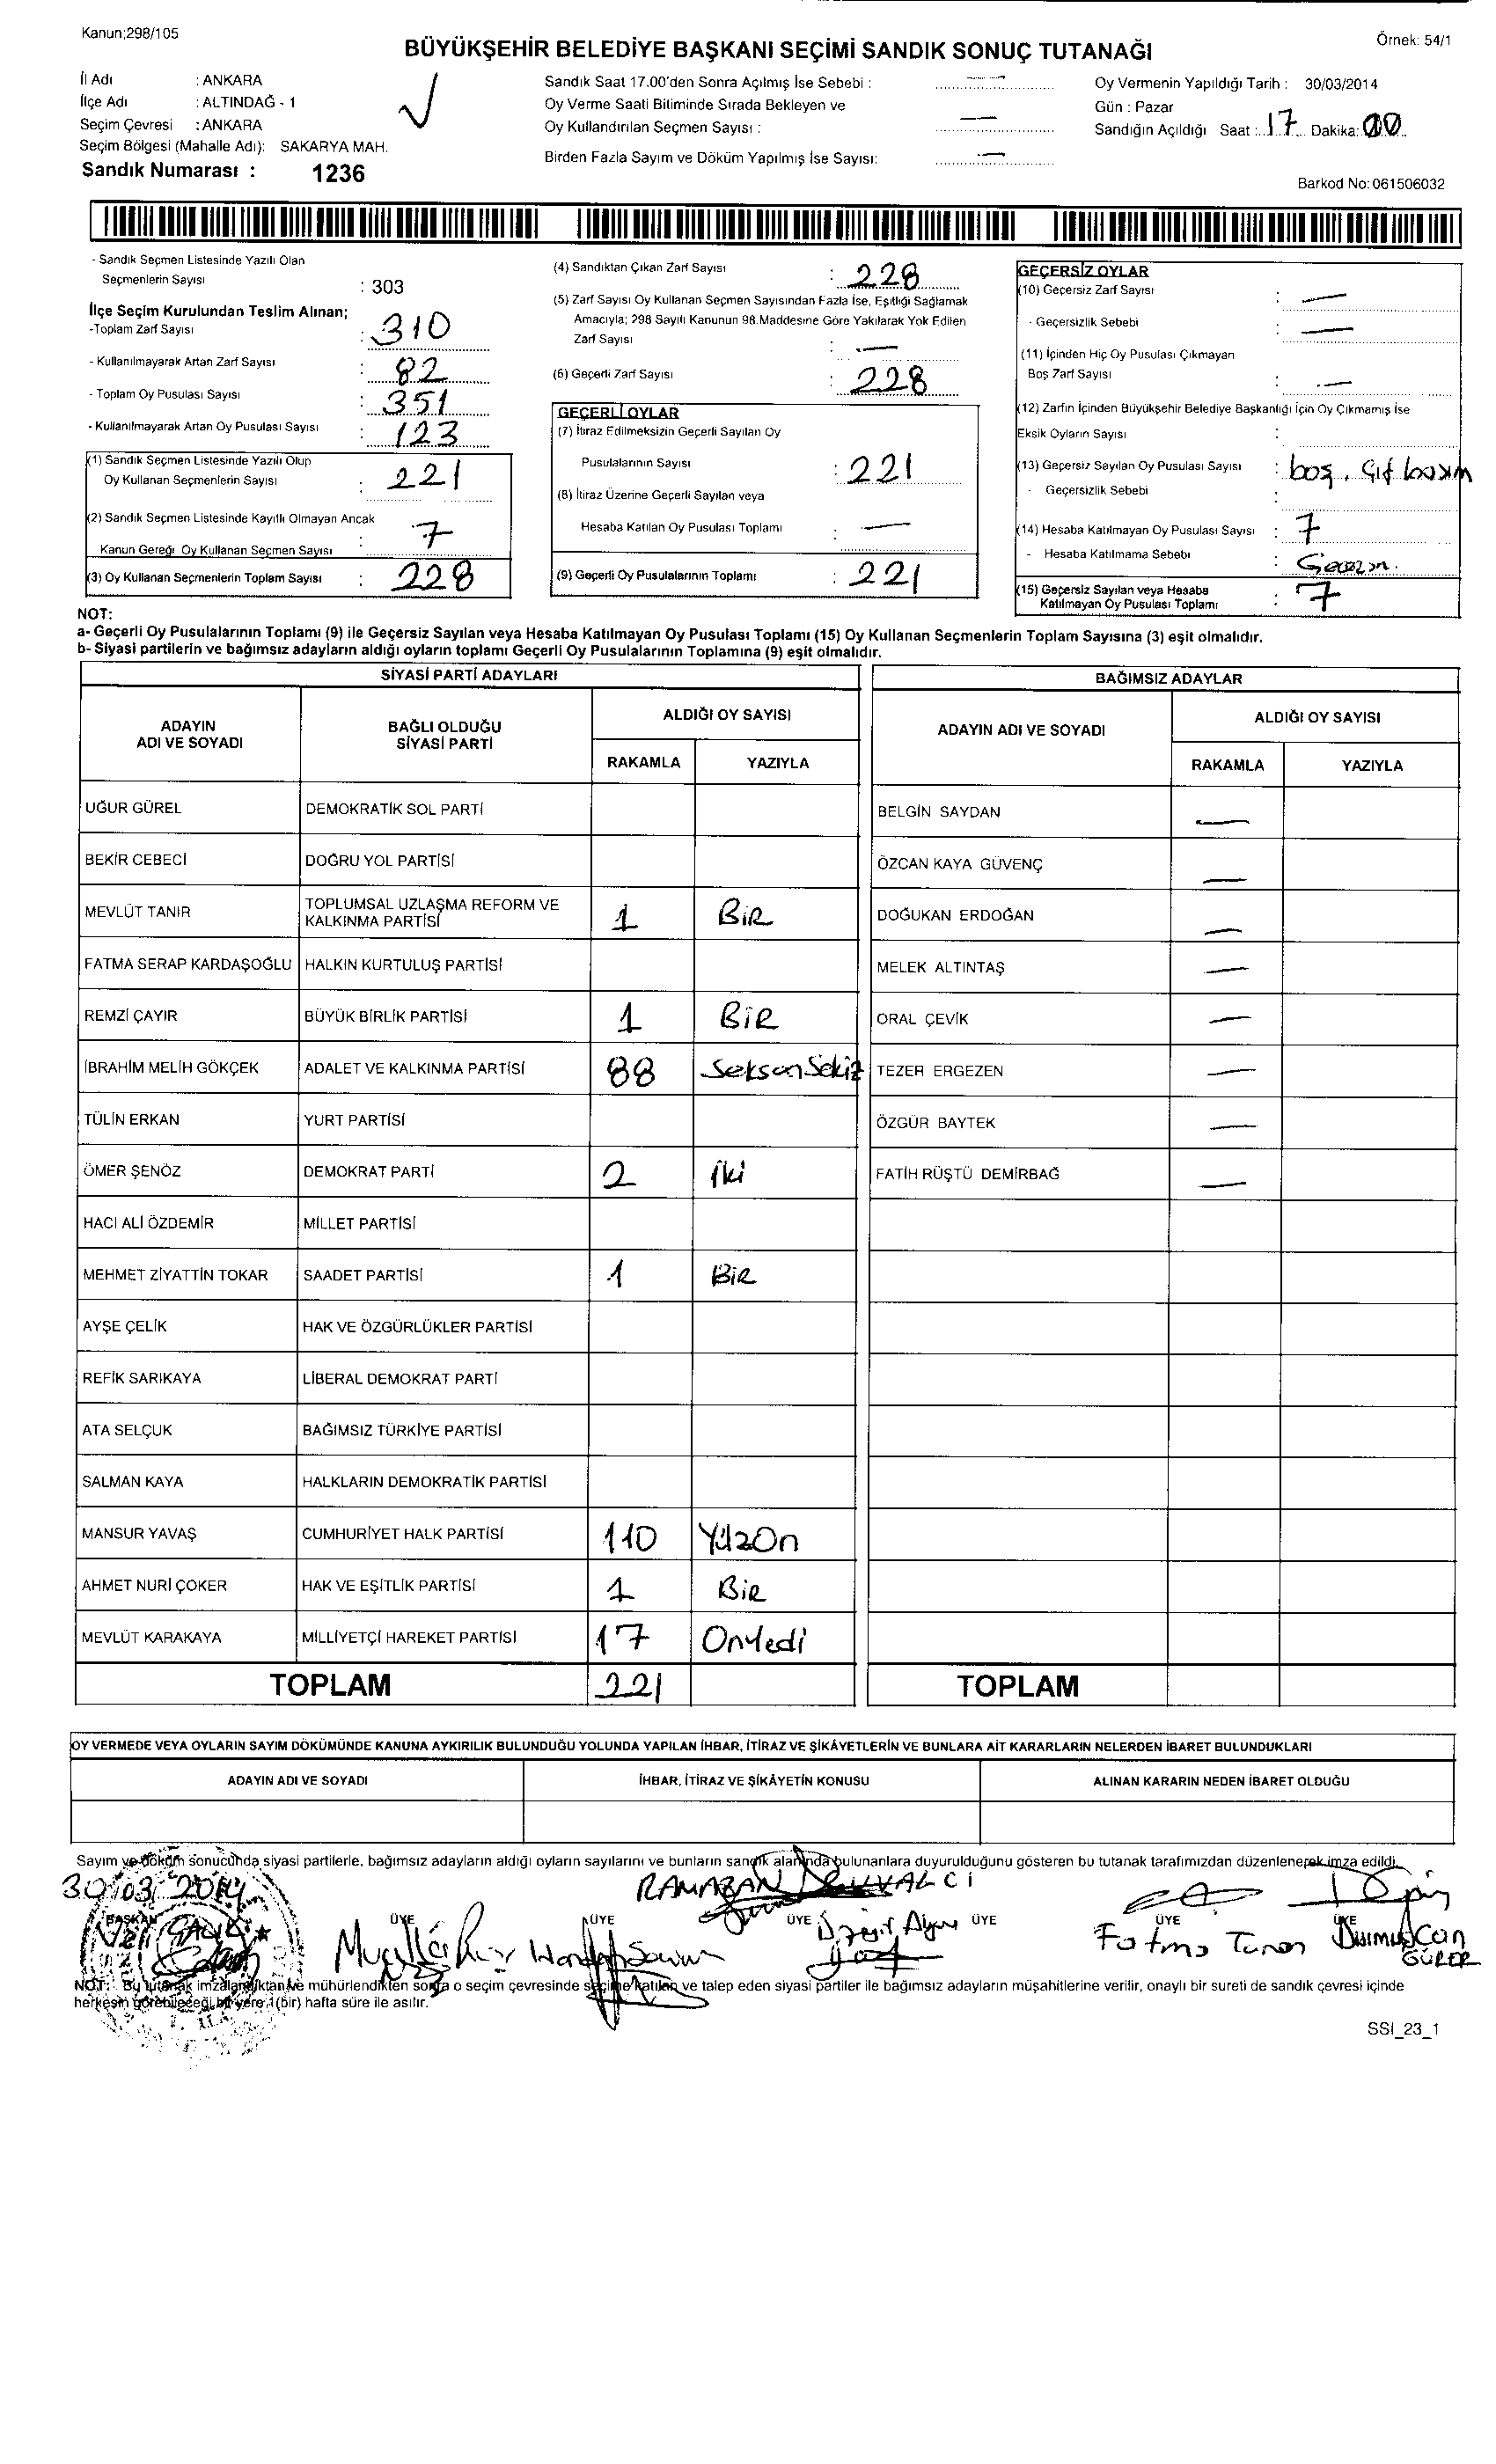 Kanun;298/105
Örnek: 54/1
BÜYÜKŞEHİR BELEDİYE BAŞKANI SEÇİMİ SANDIK SONUÇ TUTANAĞI
İl Adı : ANKARA
İlçe Adı : ALTINDAĞ - 1
Seçim Çevresi : ANKARA
Seçim Bölgesi (Mahalle Adı): SAKARYA MAH.
Sandık Numarası : 1236
Sandık Saat 17.00'den Sonra Açılmış İse Sebebi : —
Oy Verme Saati Bitiminde Sırada Bekleyen ve
Oy Kullandırılan Seçmen Sayısı : —
Birden Fazla Sayım ve Döküm Yapılmış İse Sayısı: —
Oy Vermenin Yapıldığı Tarih : 30/03/2014
Gün : Pazar
Sandığın Açıldığı Saat : 17 Dakika: 00
Barkod No: 061506032
- Sandık Seçmen Listesinde Yazılı Olan
Seçmenlerin Sayısı : 303
İlçe Seçim Kurulundan Teslim Alınan;
-Toplam Zarf Sayısı : 310
- Kullanılmayarak Artan Zarf Sayısı : 82
- Toplam Oy Pusulası Sayısı : 351
- Kullanılmayarak Artan Oy Pusulası Sayısı : 123
(1) Sandık Seçmen Listesinde Yazılı Olup
Oy Kullanan Seçmenlerin Sayısı : 221
(2) Sandık Seçmen Listesinde Kayıtlı Olmayan Ancak
Kanun Gereği Oy Kullanan Seçmen Sayısı : 7
(3) Oy Kullanan Seçmenlerin Toplam Sayısı : 228
(4) Sandıktan Çıkan Zarf Sayısı : 228
(5) Zarf Sayısı Oy Kullanan Seçmen Sayısından Fazla İse, Eşitliği Sağlamak
Amacıyla; 298 Sayılı Kanunun 98.Maddesine Göre Yakılarak Yok Edilen
Zarf Sayısı : —
(6) Geçerli Zarf Sayısı : 228
GEÇERLİ OYLAR
(7) İtiraz Edilmeksizin Geçerli Sayılan Oy
Pusulalarının Sayısı : 221
(8) İtiraz Üzerine Geçerli Sayılan veya
Hesaba Katılan Oy Pusulası Toplamı : —
(9) Geçerli Oy Pusulalarının Toplamı : 221
GEÇERSİZ OYLAR
(10) Geçersiz Zarf Sayısı : —
- Geçersizlik Sebebi : —
(11) İçinden Hiç Oy Pusulası Çıkmayan
Boş Zarf Sayısı : —
(12) Zarfın İçinden Büyükşehir Belediye Başkanlığı İçin Oy Çıkmamış İse
Eksik Oyların Sayısı :
(13) Geçersiz Sayılan Oy Pusulası Sayısı : boş, Çif
- Geçersizlik Sebebi :
(14) Hesaba Katılmayan Oy Pusulası Sayısı : 7
- Hesaba Katılmama Sebebi :
(15) Geçersiz Sayılan veya Hesaba
Katılmayan Oy Pusulası Toplamı : 7
NOT:
a- Geçerli Oy Pusulalarının Toplamı (9) ile Geçersiz Sayılan veya Hesaba Katılmayan Oy Pusulası Toplamı (15) Oy Kullanan Seçmenlerin Toplam Sayısına (3) eşit olmalıdır.
b- Siyasi partilerin ve bağımsız adayların aldığı oyların toplamı Geçerli Oy Pusulalarının Toplamına (9) eşit olmalıdır.
SİYASİ PARTİ ADAYLARI
ADAYIN ADI VE SOYADI BAĞLI OLDUĞU SİYASİ PARTİ ALDIĞI OY SAYISI
RAKAMLA YAZIYLA
UĞUR GÜREL DEMOKRATİK SOL PARTİ
BEKİR CEBECİ DOĞRU YOL PARTİSİ
MEVLÜT TANIR TOPLUMSAL UZLAŞMA REFORM VE KALKINMA PARTİSİ 1 BİR
FATMA SERAP KARDAŞOĞLU HALKIN KURTULUŞ PARTİSİ
REMZİ ÇAYIR BÜYÜK BİRLİK PARTİSİ 1 BİR
İBRAHİM MELİH GÖKÇEK ADALET VE KALKINMA PARTİSİ 88 SeksenSekiz
TÜLİN ERKAN YURT PARTİSİ
ÖMER ŞENÖZ DEMOKRAT PARTİ 2 İki
HACI ALİ ÖZDEMİR MİLLET PARTİSİ
MEHMET ZİYATTİN TOKAR SAADET PARTİSİ 1 BİR
AYŞE ÇELİK HAK VE ÖZGÜRLÜKLER PARTİSİ
REFİK SARIKAYA LİBERAL DEMOKRAT PARTİ
ATA SELÇUK BAĞIMSIZ TÜRKİYE PARTİSİ
SALMAN KAYA HALKLARIN DEMOKRATİK PARTİSİ
MANSUR YAVAŞ CUMHURİYET HALK PARTİSİ 110 YüzOn
AHMET NURİ ÇOKER HAK VE EŞİTLİK PARTİSİ 1 BİR
MEVLÜT KARAKAYA MİLLİYETÇİ HAREKET PARTİSİ 17 OnYedi
TOPLAM 221
BAĞIMSIZ ADAYLAR
ADAYIN ADI VE SOYADI ALDIĞI OY SAYISI
RAKAMLA YAZIYLA
BELGİN SAYDAN —
ÖZCAN KAYA GÜVENÇ —
DOĞUKAN ERDOĞAN —
MELEK ALTINTAŞ —
ORAL ÇEVİK —
TEZER ERGEZEN —
ÖZGÜR BAYTEK —
FATİH RÜŞTÜ DEMİRBAĞ —
TOPLAM
OY VERMEDE VEYA OYLARIN SAYIM DÖKÜMÜNDE KANUNA AYKIRILIK BULUNDUĞU YOLUNDA YAPILAN İHBAR, İTİRAZ VE ŞİKÂYETLERİN VE BUNLARA AİT KARARLARIN NELERDEN İBARET BULUNDUKLARI
ADAYIN ADI VE SOYADI İHBAR, İTİRAZ VE ŞİKÂYETİN KONUSU ALINAN KARARIN NEDEN İBARET OLDUĞU
Sayım ve döküm sonucunda siyasi partilerle, bağımsız adayların aldığı oyların sayılarını ve bunların sandık alanında bulunanlara duyurulduğunu gösteren bu tutanak tarafımızdan düzenlenerek imza edildi.
30/03/2014 RAMAZAN
BAŞKAN ÜYE ÜYE ÜYE ÜYE ÜYE ÜYE
Fatma Turan Durmuşcan
GÜRER
NOT: Bu tutanak imzalandıktan ve mühürlendikten sonra o seçim çevresinde seçime katılan ve talep eden siyasi partiler ile bağımsız adayların müşahitlerine verilir, onaylı bir sureti de sandık çevresi içinde
herkesin görebileceği bir yere 1 (bir) hafta süre ile asılır.
SSI_23_1